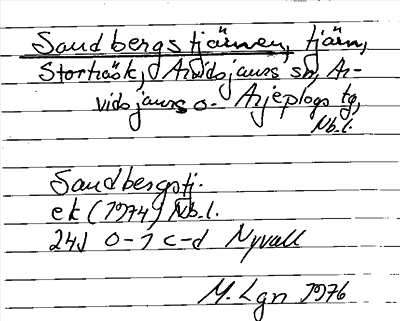 Sandbergstjärnen, tjärn,
Storträsk, Arvidsjaurs sn, Ar-
vidsjaurs o. Arjeplogs tg,
Nb.l.
Sandbergstj.
ek (1974) Nb.l.
24J 0-1 c-d Nyvall
M. Lgn 1976